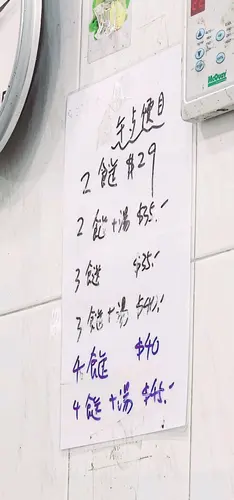 價目
2 餸 $29
2 餸+湯 $35.-
3 餸 $35.-
3 餸+湯 $40.-
4 餸 $40
4 餸+湯 $45.-
McQuay